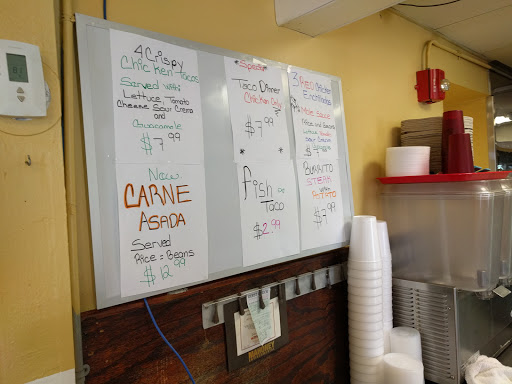 4 Crispy
Chicken Tacos
Served with
Lettuce, Tomato
Cheese Sour Cream
and
Guacamole
$7.99
*Special*
Taco Dinner
Chicken Only
$7.99
* *
3 Red Chicken
Enchiladas
Mole Sauce
Rice and Beans
Lettuce
Sour Cream
New
CARNE
ASADA
Served
Rice = Beans
$12.99
fish
Taco
$2.99
BURRITO
STEAK
POTATO
$7.99